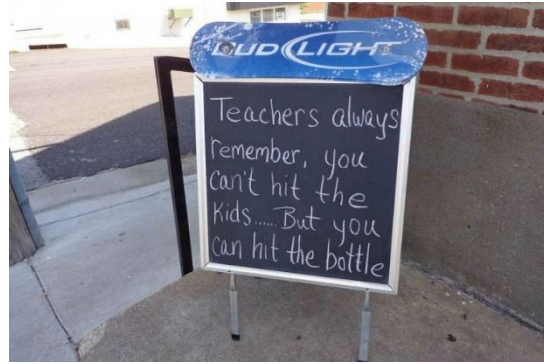 BUD LIGHT
Teachers always
remember, you
can't hit the
Kids...... But you
can hit the bottle